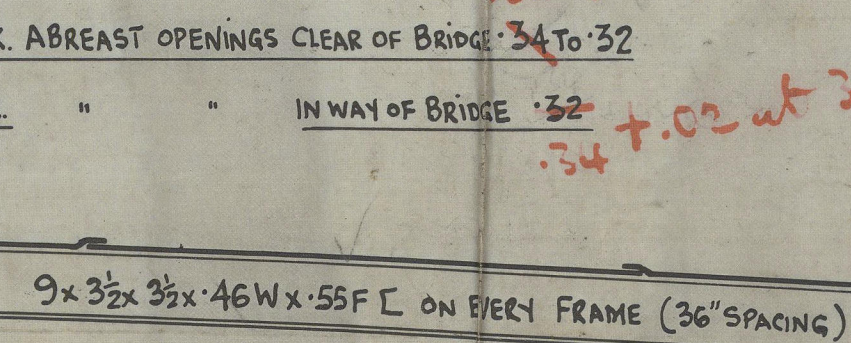 . ABREAST OPENINGS CLEAR OF BRIDGE ·34 TO ·32
" " IN WAY OF BRIDGE ·32
·34 + .02 at 3
9 x 3½ x 3½ x ·46 W x ·55 F [ ON EVERY FRAME (36" SPACING)